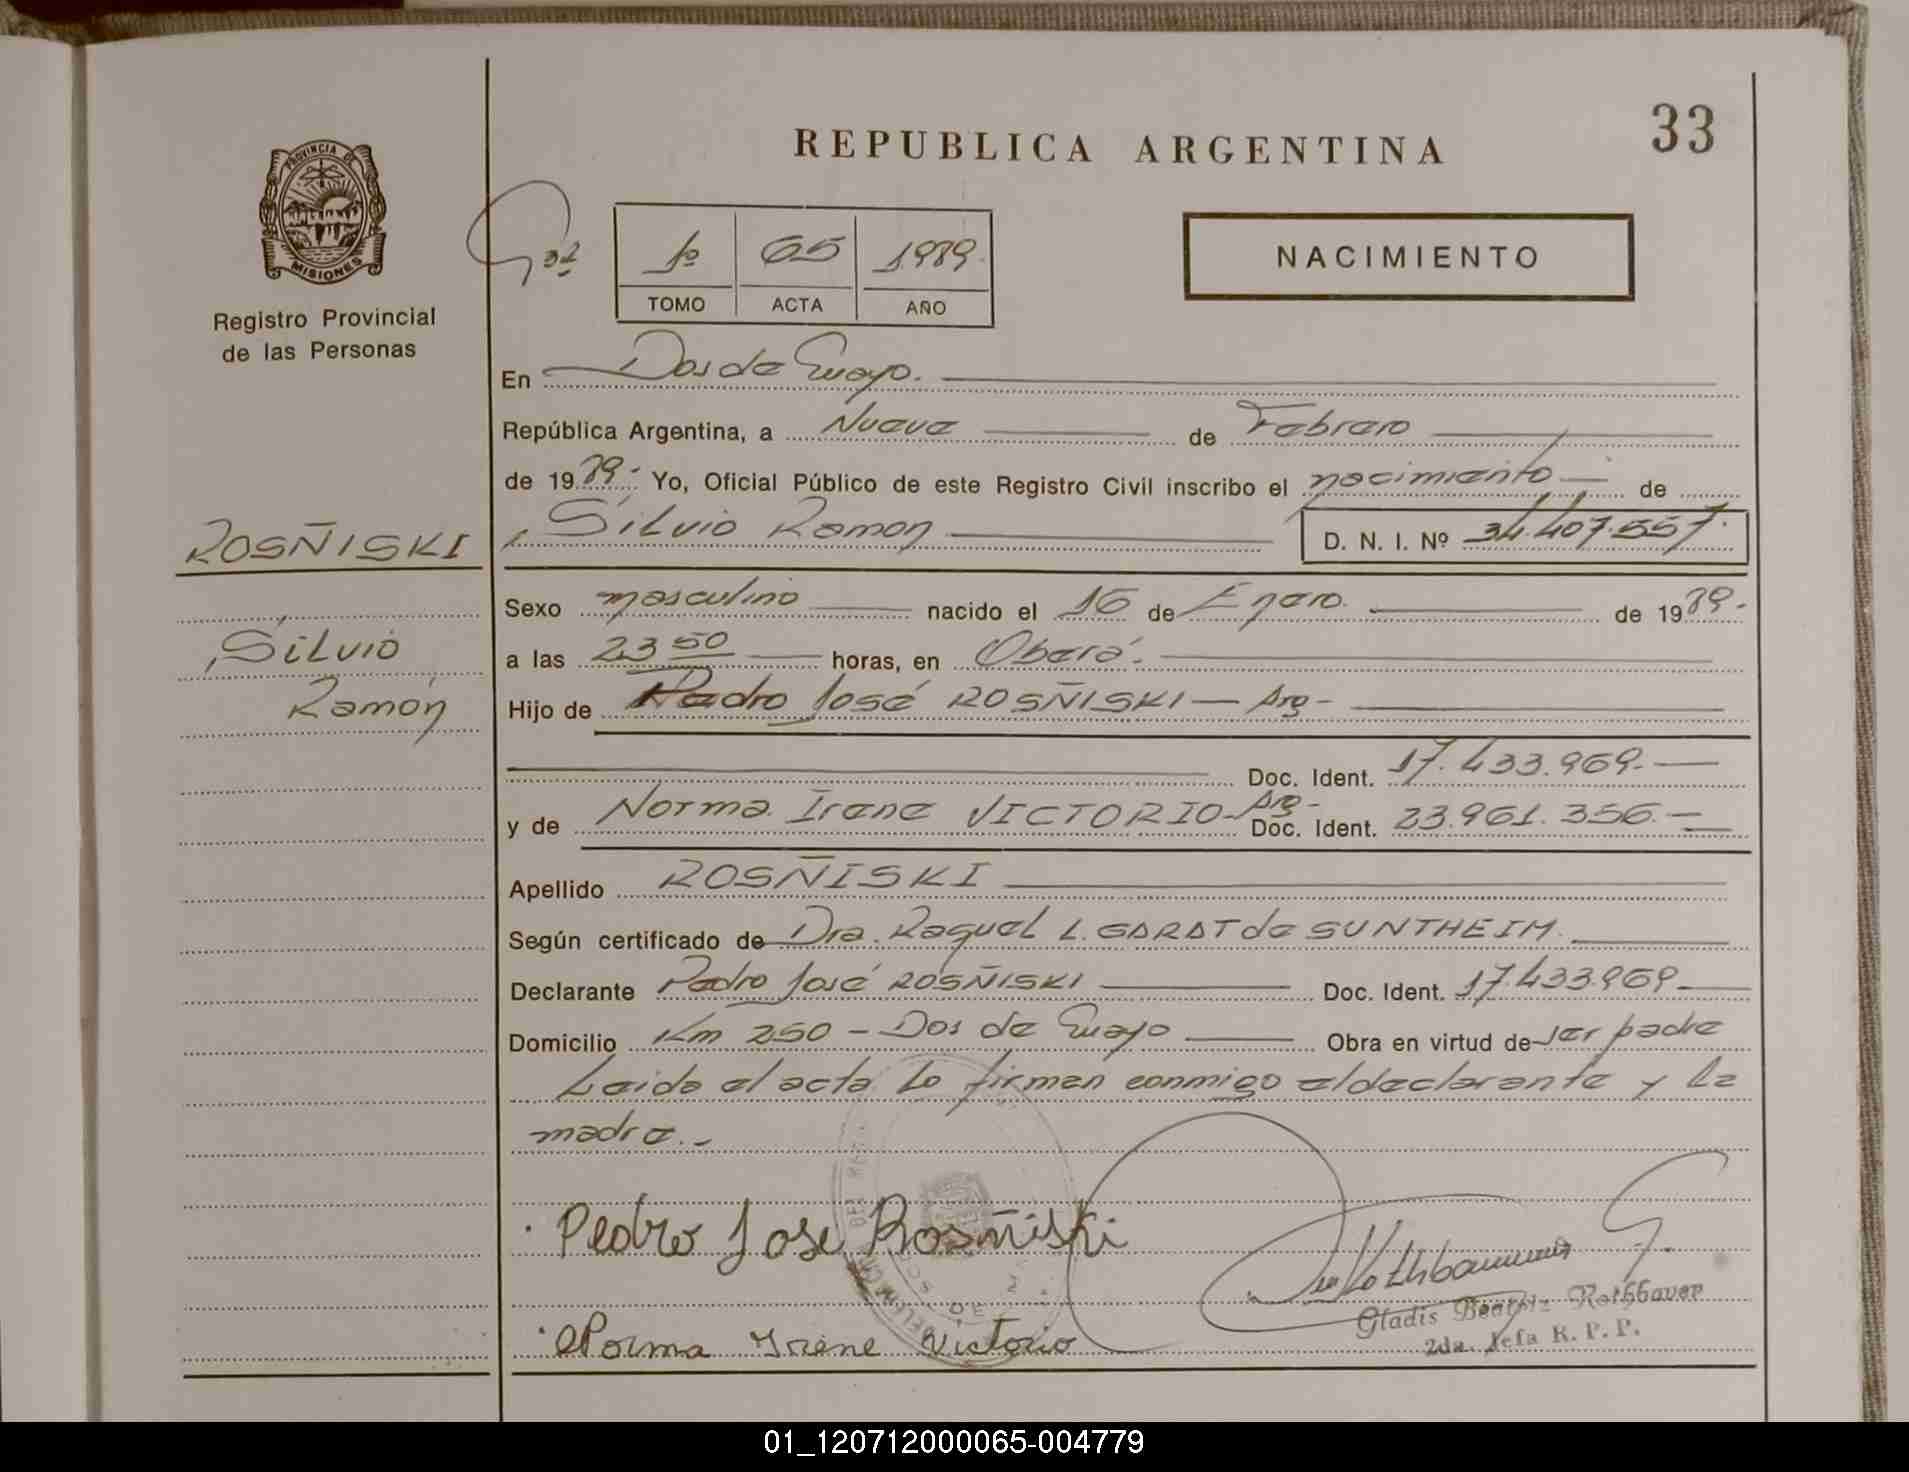 33
REPUBLICA ARGENTINA
PROVINCIA DE
MISIONES
Registro Provincial
de las Personas
1º 65 1989
TOMO ACTA AÑO
NACIMIENTO
En Dos de Mayo.
República Argentina, a Nueve de Febrero
de 1989.- Yo, Oficial Público de este Registro Civil inscribo el nacimiento de
ROSÑISKI
Silvio Ramon D. N. I. Nº 34.407.557.
Sexo masculino nacido el 16 de Enero. de 1989.-
Silvio
a las 23 50 horas, en Oberá.
Ramón
Hijo de Pedro José ROSÑISKI - Arg -
Doc. Ident. 17.433.969.-
y de Norma Irene VICTORIO - Arg - Doc. Ident. 23.961.356.-
Apellido ROSÑISKI
Según certificado de Dra. Raquel L. GARAT de SUNTHEIM.
Declarante Pedro José ROSÑISKI Doc. Ident. 17.433.969
Domicilio Km 250 - Dos de Mayo Obra en virtud de ser padre
Leida el acta lo firman conmigo el declarante y la
madre.-
Pedro Jose Rosñiski
Gladis Beatriz Rothbauer
2da. Jefa R. P. P.
Norma Irene Victorio
01_120712000065-004779